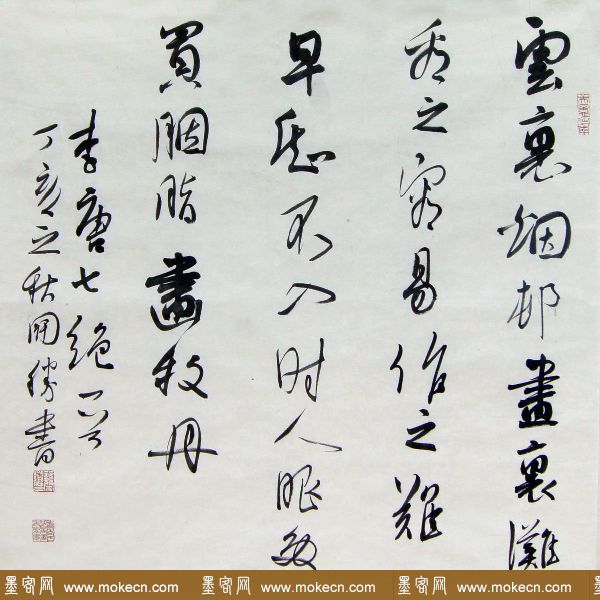 雲裏烟邨畫裏灘
看之容易作之難
早知不入时人眼多
買胭脂畫牡丹
李唐七絶一首
丁亥之秋勝書
墨客网 www.mokecn.com 墨客网 www.mokecn.com 墨客网 www.mokecn.com